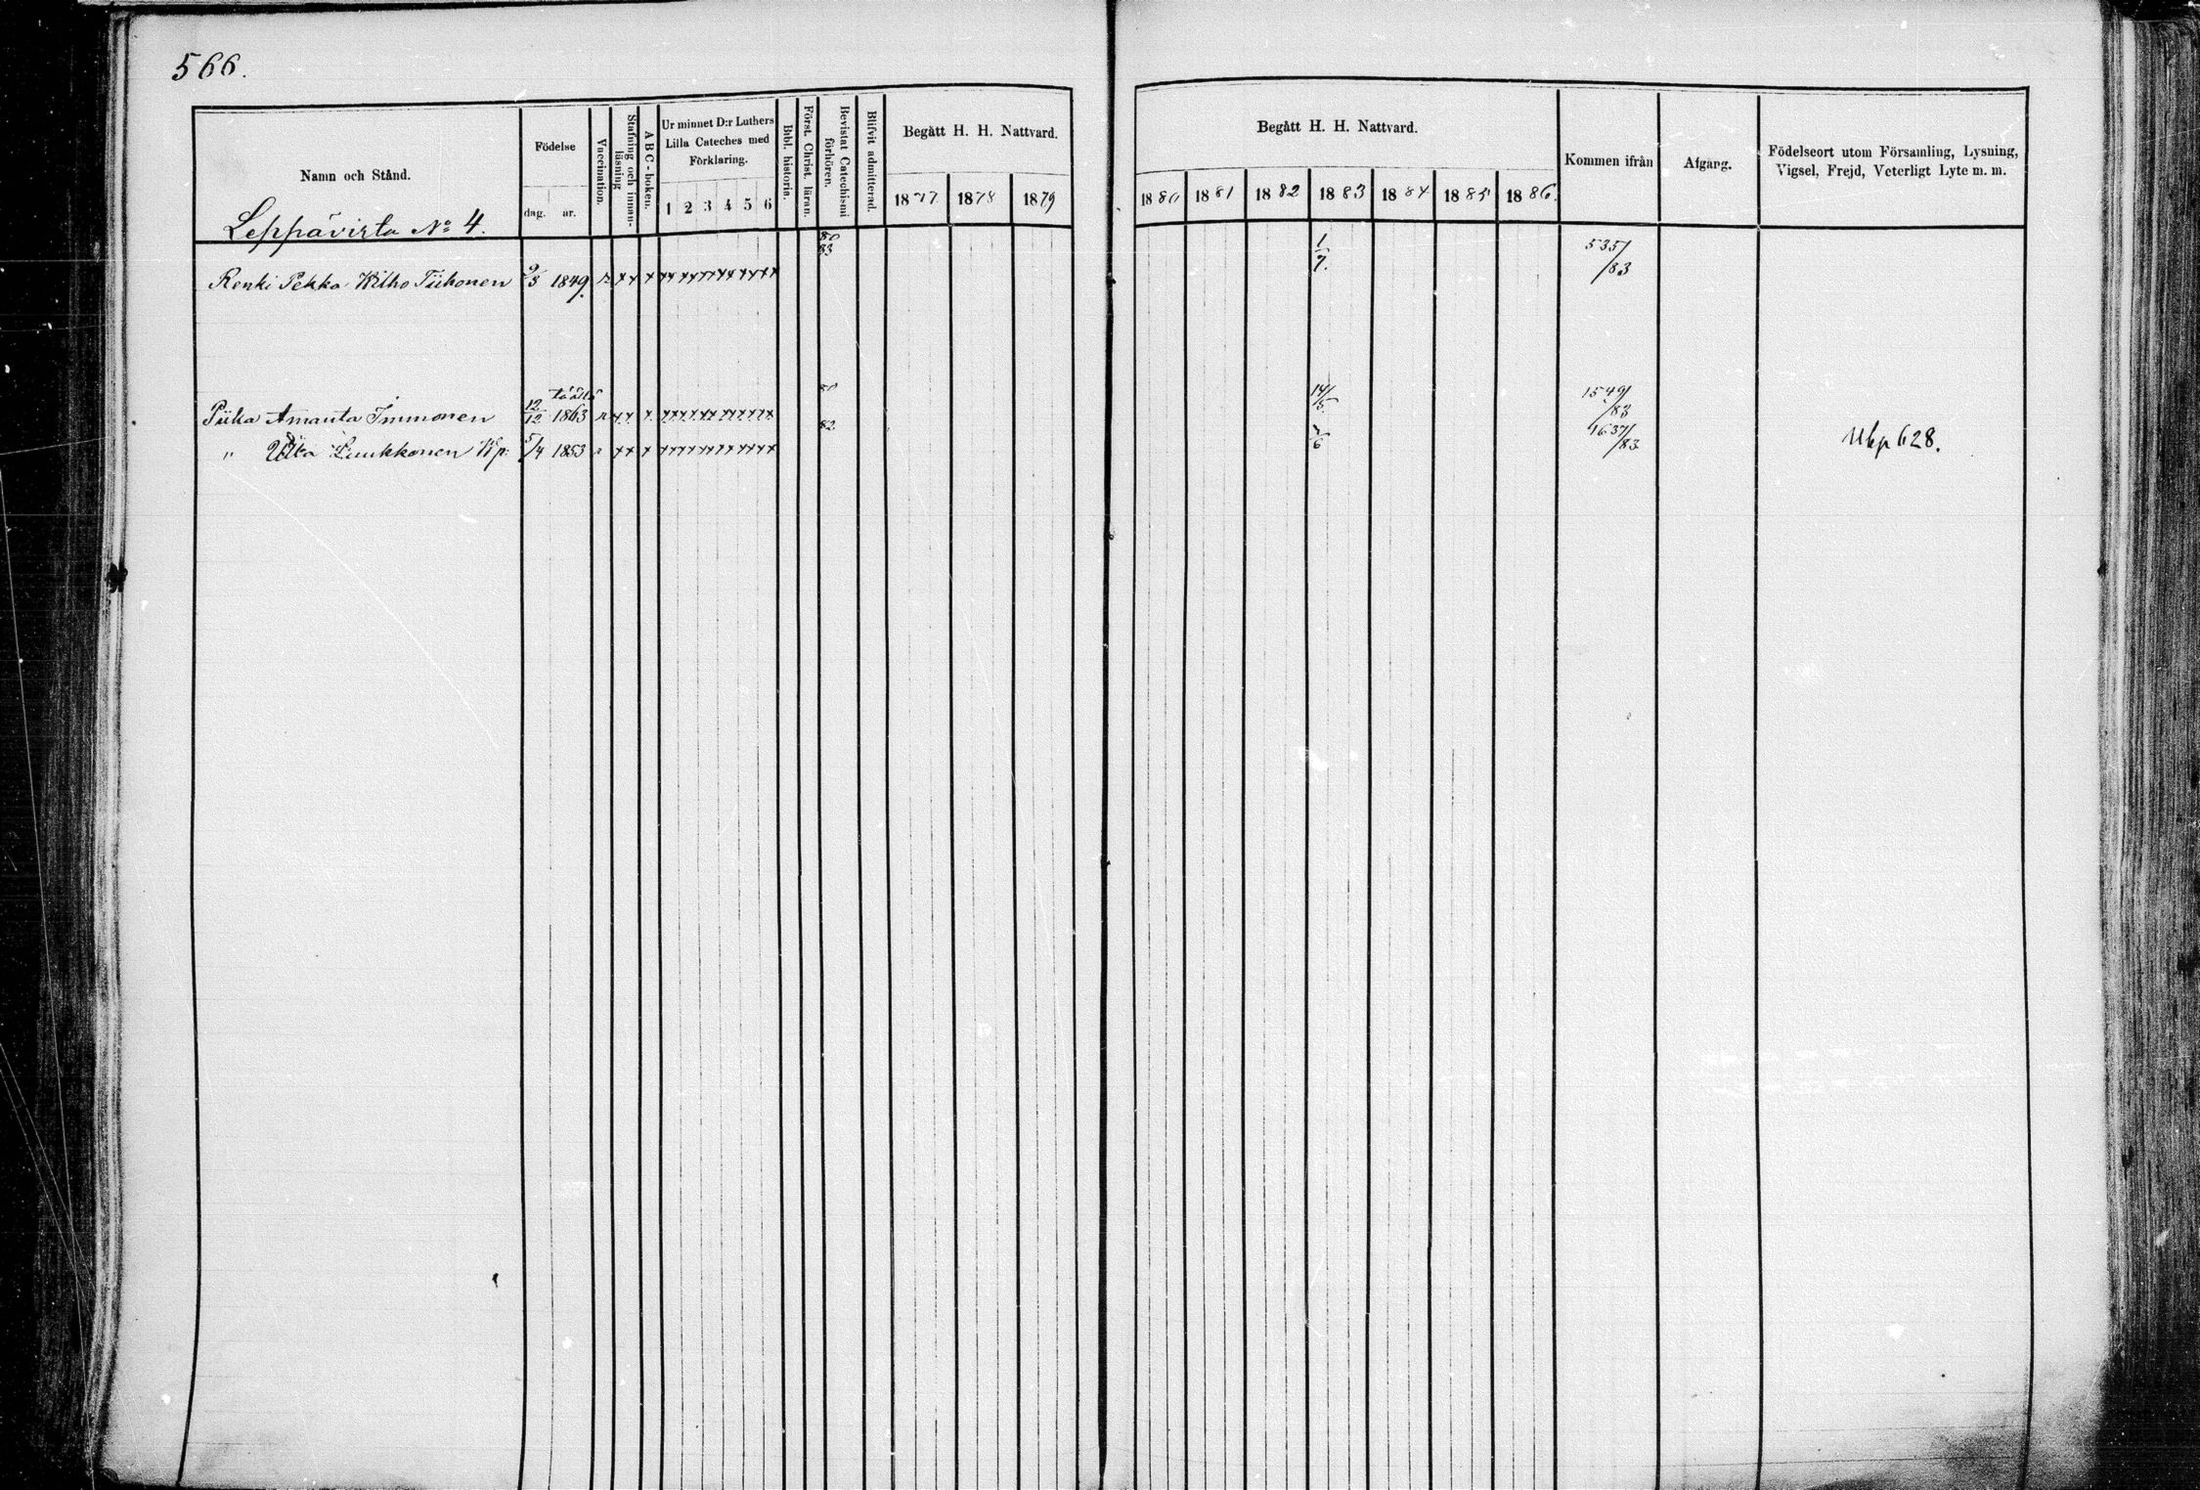 566.
Namn och Stånd.
Födelse
dag. år.
Vaccination.
Stafning och innanläsning
ABC-boken.
Ur minnet D:r Luthers Lilla Cateches med Förklaring.
1 2 3 4 5 6
Bibl. historia.
Först. Christ. läran.
Bevistat Catechismi förhören.
Blifvit admitterad.
Begått H. H. Nattvard.
1877 1878 1879
Begått H. H. Nattvard.
1880 1881 1882 1883 1884 1885 1886.
Kommen ifrån
Afgång.
Födelseort utom Församling, Lysning, Vigsel, Frejd, Veterligt Lyte m. m.
Leppävirta No 4.
Renki Pekka Wilho Tiihonen 9/3 1849. 83 1/7. 535/83
täältä
Piika Amanta Immonen 12/12 1863 14/5. 1549/83
" Ulla Luukkonen Wp: 5/4 1853 82 1637/83 Ukp 628.